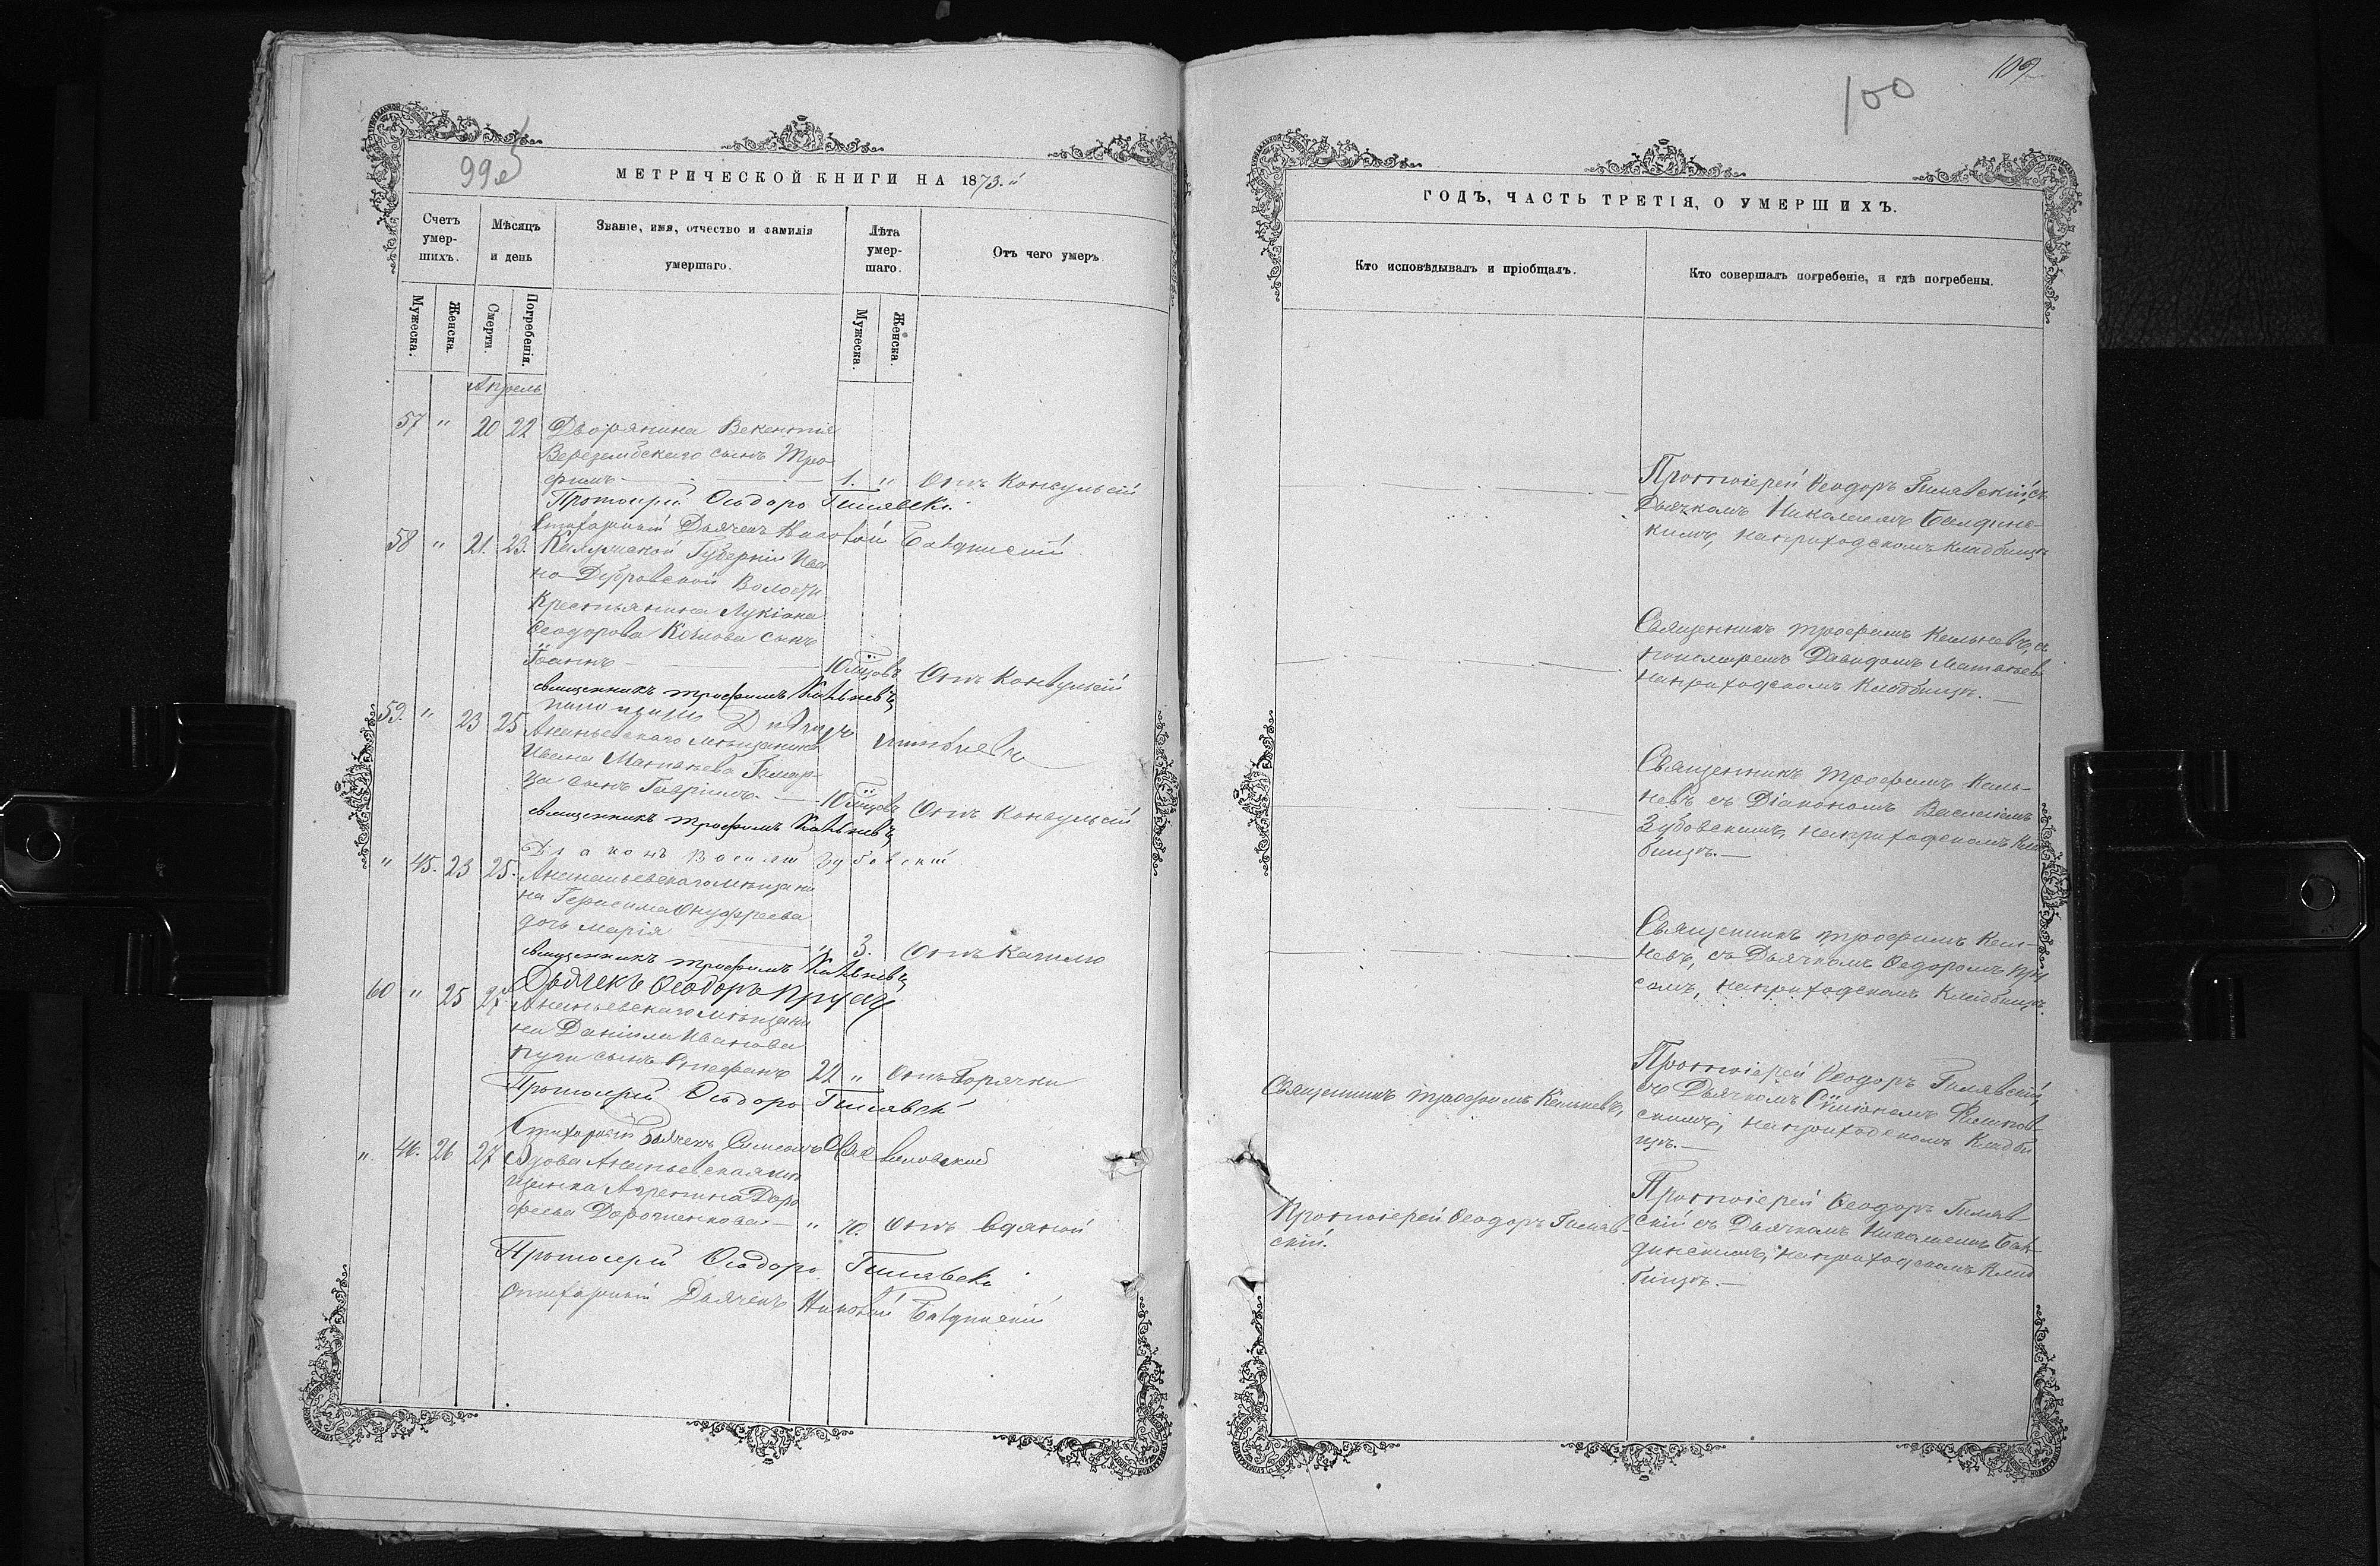 99
МЕТРИЧЕСКОЙ КНИГИ НА 1873.й
Счетъ умер-шихъ.
Мѣсяцъ и день
Званіе, имя, отчество и фамилія умершаго.
Лѣта умер-шаго.
Отъ чего умеръ.
Мужеска.
Женска.
Смерти.
Погребенія.
Мужеска.
Женска.
Апрель
57 " 20 22 Дворянина Векентія
сынъ Тро
фимъ 1. " Отъ Конвульсій
Протоіерей Ѳеодоръ Гилявскій
Стихарный Дьячекъ Николай
58 " 21. 23. Калужской Губерніи
Волости
Крестьянина Лукіана
Ѳеодорова Козлова сынъ
Іоаннъ 10 мѣсяцовъ Отъ Конвульсій
священникъ трофимъ Кальневъ
59. " 23 25 Ананьевскаго мѣщанина
Ивана Матвѣева
за сынъ Гавріилъ 10 мѣсяцовъ Отъ Конвульсій
священникъ трофимъ Кальневъ
Діаконъ Василій Зубовскій
" 45. 23 25. Ананьевскаго мѣщани
на Герасима Онуфреева
дочь Марія " 3. Отъ Кашлю
священникъ трофимъ Кальневъ
Дьячекъ Ѳеодоръ Прусъ
60 " 25 27 Ананьевскаго мѣщани
на Даніила Иванова
сынъ Стефанъ 22 " Отъ Горячки
Протоіерей Ѳеодоръ Гилявскій
Стихарный Дьячекъ Симеонъ
" 46. 26 27 Вдова Ананьевская мѣ
щанка Агрепина Доро
феева Дорошенкова " 70. Отъ Водяной
Протоіерей Ѳеодоръ Гилявскій
Стихарный Дьячекъ Николай
109
100
ГОДЪ, ЧАСТЬ ТРЕТІЯ, О УМЕРШИХЪ.
Кто исповѣдывалъ и пріобщалъ.
Кто совершалъ погребеніе, и гдѣ погребены.
Протоіерей Ѳеодоръ Гилявскій, съ
Дьячкомъ Николаемъ
кимъ, на приходскомъ кладбищѣ
Священникъ трофимъ Кальневъ, съ
пономаремъ Давидомъ Матвѣев
на приходскомъ Кладбищѣ.
Священникъ трофимъ Каль-
невъ съ Діакономъ Василіемъ
Зубовскимъ, на приходскомъ Клад
бищѣ.
Священникъ трофимъ Каль-
невъ, съ Дьячкомъ Ѳедоромъ Пру
сомъ, на приходскомъ Кладбищѣ.
Священникъ трофимъ Кальневъ,
Протоіерей Ѳеодоръ Гилявскій,
съ Дьячкомъ Симеономъ
скимъ, на приходскомъ Кладби
щѣ.
Протоіерей Ѳеодоръ Гиляв-
скій.
Протоіерей Ѳеодоръ Гиляв-
скій съ Дьячкомъ Николаемъ
динскимъ, на приходскомъ Клад
бищѣ.